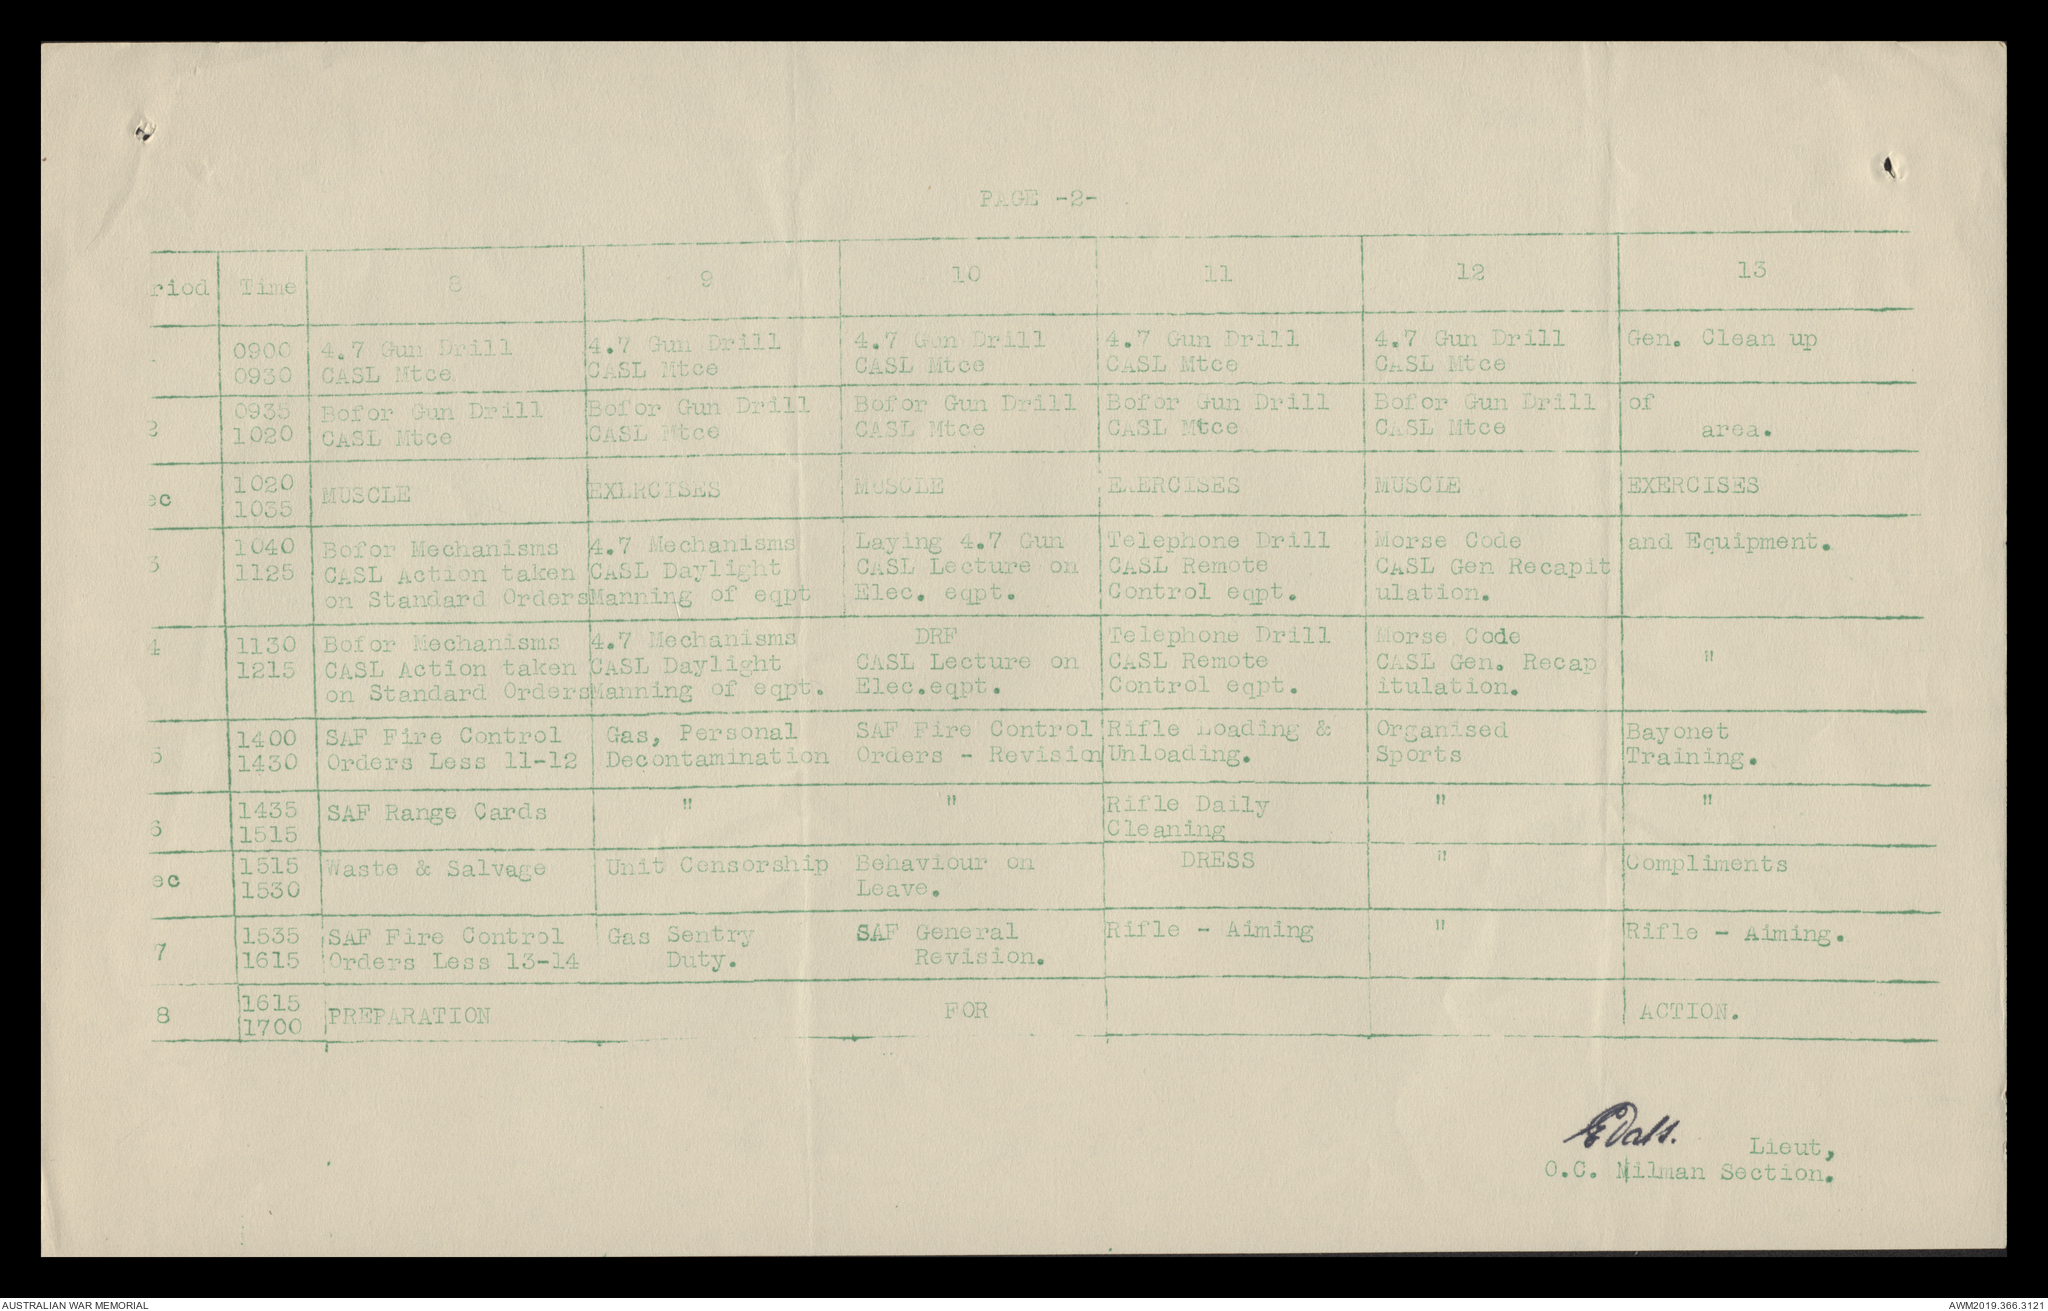 PAGE -2-
riod Time 8 9 10 11 12 13
0900 4.7 Gun Drill 4.7 Gun Drill 4.7 Gun Drill 4.7 Gun Drill 4.7 Gun Drill Gen. Clean up
0930 CASL Mtce CASL Mtce CASL Mtce CASL Mtce CASL Mtce
2 0935 Bofor Gun Drill Bofor Gun Drill Bofor Gun Drill Bofor Gun Drill Bofor Gun Drill of
1020 CASL Mtce CASL Mtce CASL Mtce CASL Mtce CASL Mtce area.
ec 1020 MUSCLE EXERCISES MUSCLE EXERCISES MUSCLE EXERCISES
1035
3 1040 Bofor Mechanisms 4.7 Mechanisms Laying 4.7 Gun Telephone Drill Morse Code and Equipment.
1125 CASL Action taken CASL Daylight CASL Lecture on CASL Remote CASL Gen Recapit
on Standard Orders Manning of eqpt Elec. eqpt. Control eqpt. ulation.
4 1130 Bofor Mechanisms 4.7 Mechanisms DRF Telephone Drill Morse Code "
1215 CASL Action taken CASL Daylight CASL Lecture on CASL Remote CASL Gen. Recap
on Standard Orders Manning of eqpt. Elec.eqpt. Control eqpt. itulation.
5 1400 SAF Fire Control Gas, Personal SAF Fire Control Rifle Loading & Organised Bayonet
1430 Orders Less 11-12 Decontamination Orders - Revision Unloading. Sports Training.
6 1435 SAF Range Cards " " Rifle Daily " "
1515 Cleaning
ec 1515 Waste & Salvage Unit Censorship Behaviour on DRESS " Compliments
1530 Leave.
7 1535 SAF Fire Control Gas Sentry SAF General Rifle - Aiming " Rifle - Aiming.
1615 Orders Less 13-14 Duty. Revision.
8 1615 PREPARATION FOR ACTION.
1700
Lieut,
O.C. Milman Section.
AUSTRALIAN WAR MEMORIAL AWM2019.366.3121